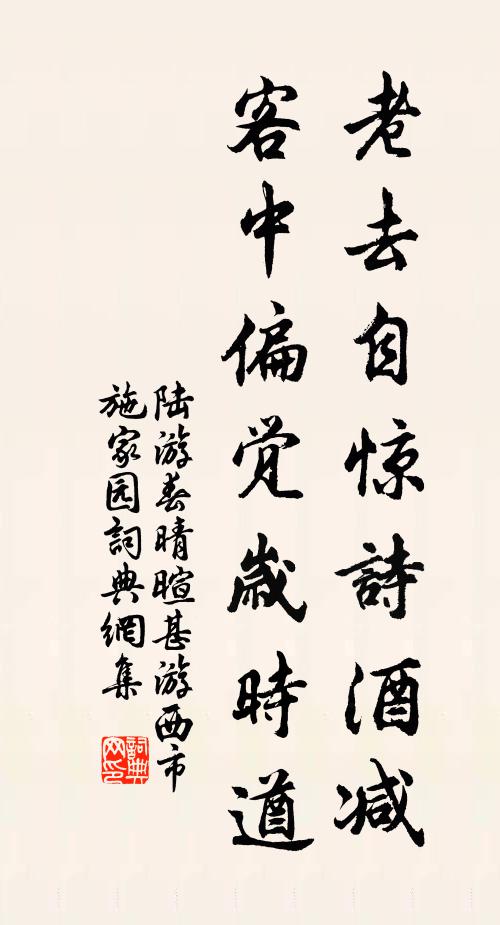 老去自惊詩酒减
客中偏觉嵗時遒
陆游春晴暄甚游西市
施家园詞典網集
詞典網印